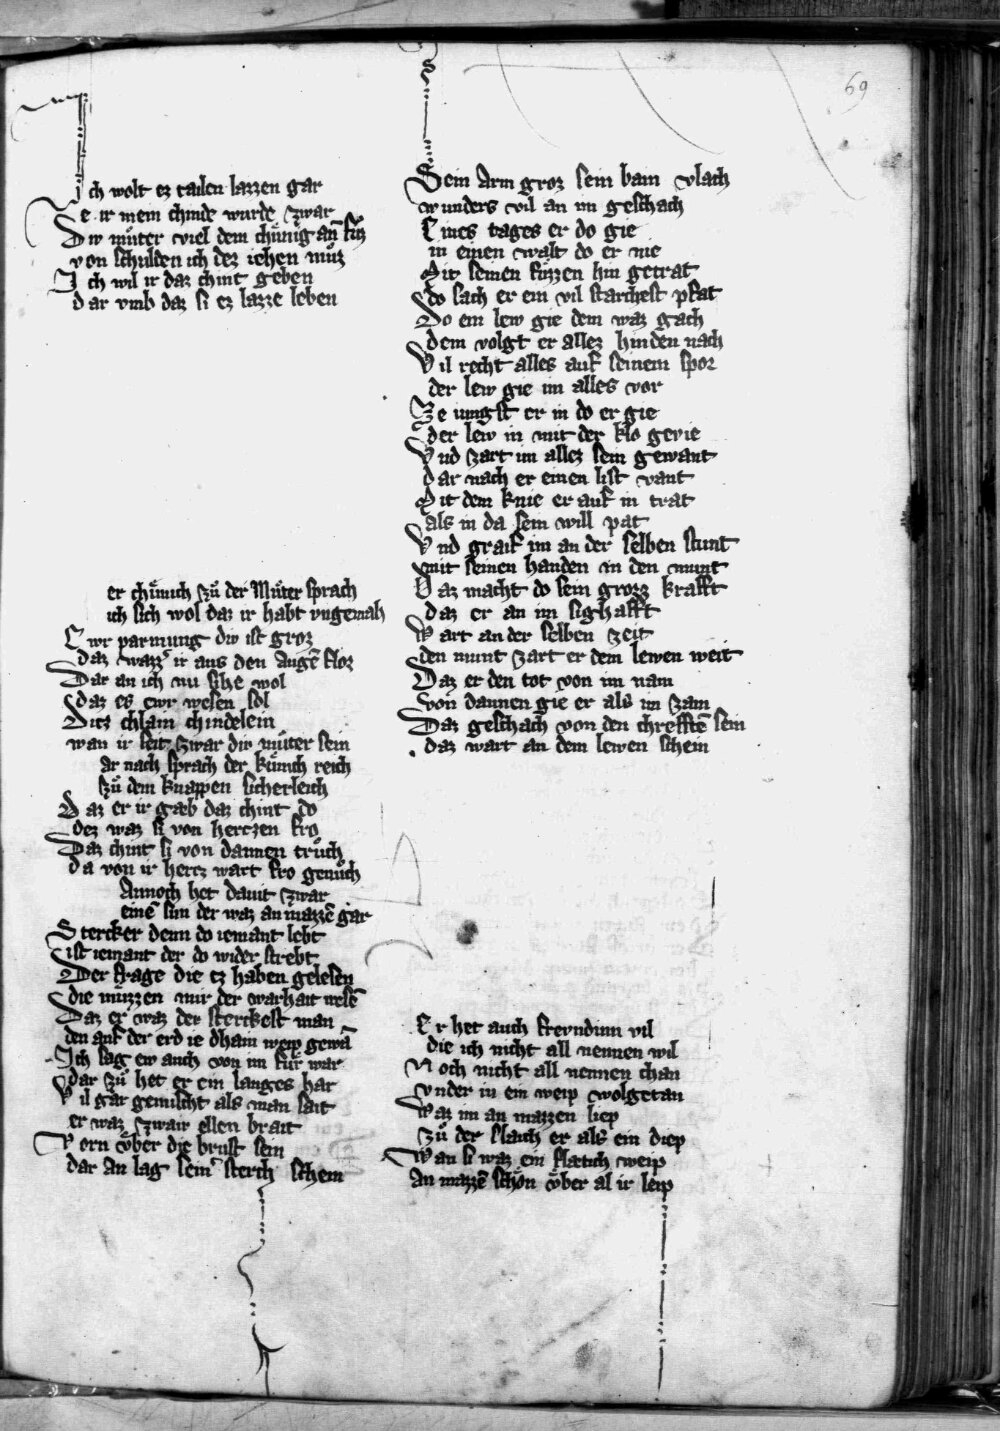 69
Ich wolt ez tailen lazzen gar
E ir mein chinde wurde zwar
Div muͤter viel dem chuͤnig an sin
von schulden ich dez iehen muͦz
Ich wil ir daz chint geben
dar vmb daz si ez lazze leben
er chuͤnich zuͦ der Muͤter sprach
ich sich wol daz ir habt vngemah
Ewr parmung div ist groz
daz wazzer ir aus den augē floz
Dar an ich nu sihe wol
daz es ewr wesen sol
Ditz chlain chindelein
wan ir seit zwar div muͤter sein
ar nach sprach der kuͤnich reich
zuͦ dem knappen sicherleich
Daz er ir gæb daz chint do
dez waz si von hertzen fro
Daz chint si von dannen truͦch
da von ir hertz wart fro genuͦch
Annoch het dauit zwar
einē sun der waz an mazzē gar
Stercker denn do iemant lebt
ist iemant der do wider strebt
Der frage die ez haben gelesen
die muͤzzen mir der warhait wesē
Daz er waz der sterckest man
den auf der erd ie dhain weip gewā
Ich sag ew auch von im fuͤr war
dar zuͦ het er ein langes har
Vil gar gemischt als man sait
er waz zwair ellen brait
Vorn vͤber die brust sein
dar an lag seinˀ sterch schein
Sein arm groz sein bain vlach
wunders vil an im geschach
Eines tages er do gie
in einen walt do er nie
Mit seinen fuzzen hin getrat
do sach er ein vil starchest pfat
Do ein lew gie dem waz gach
dem volgt er allez hinden nach
Vil recht alles auf seinem spor
der lew gie im alles vor
Ze iungst er in do er gie
der lew in mit der klo gevie
Vnd zart im allez sein gewant
dar nach er einen list vant
Mit dem knie er auf in trat
als in da sein will pat
Vnd graif im an der selben stunt
mit seinen handen in den munt
Daz macht do sein grozz krafft
daz er an im sighafft
Wart an der selben zeit
den munt zart er dem lewen weit
Daz er den tot von im nam
von dannen gie er als im zam
Daz geschach von den chrefftē sein
daz wart an dem lewen schein
Er het auch frevndinn vil
die ich nicht all nennen wil
Noch nicht all nennen chan
vnder in ein weip wolgetan
Waz im an mazzen liep
zuͦ der slaich er als ein diep
Wan si waz ein flætich weip
an mazzē schoͤn vͤber al ir leip